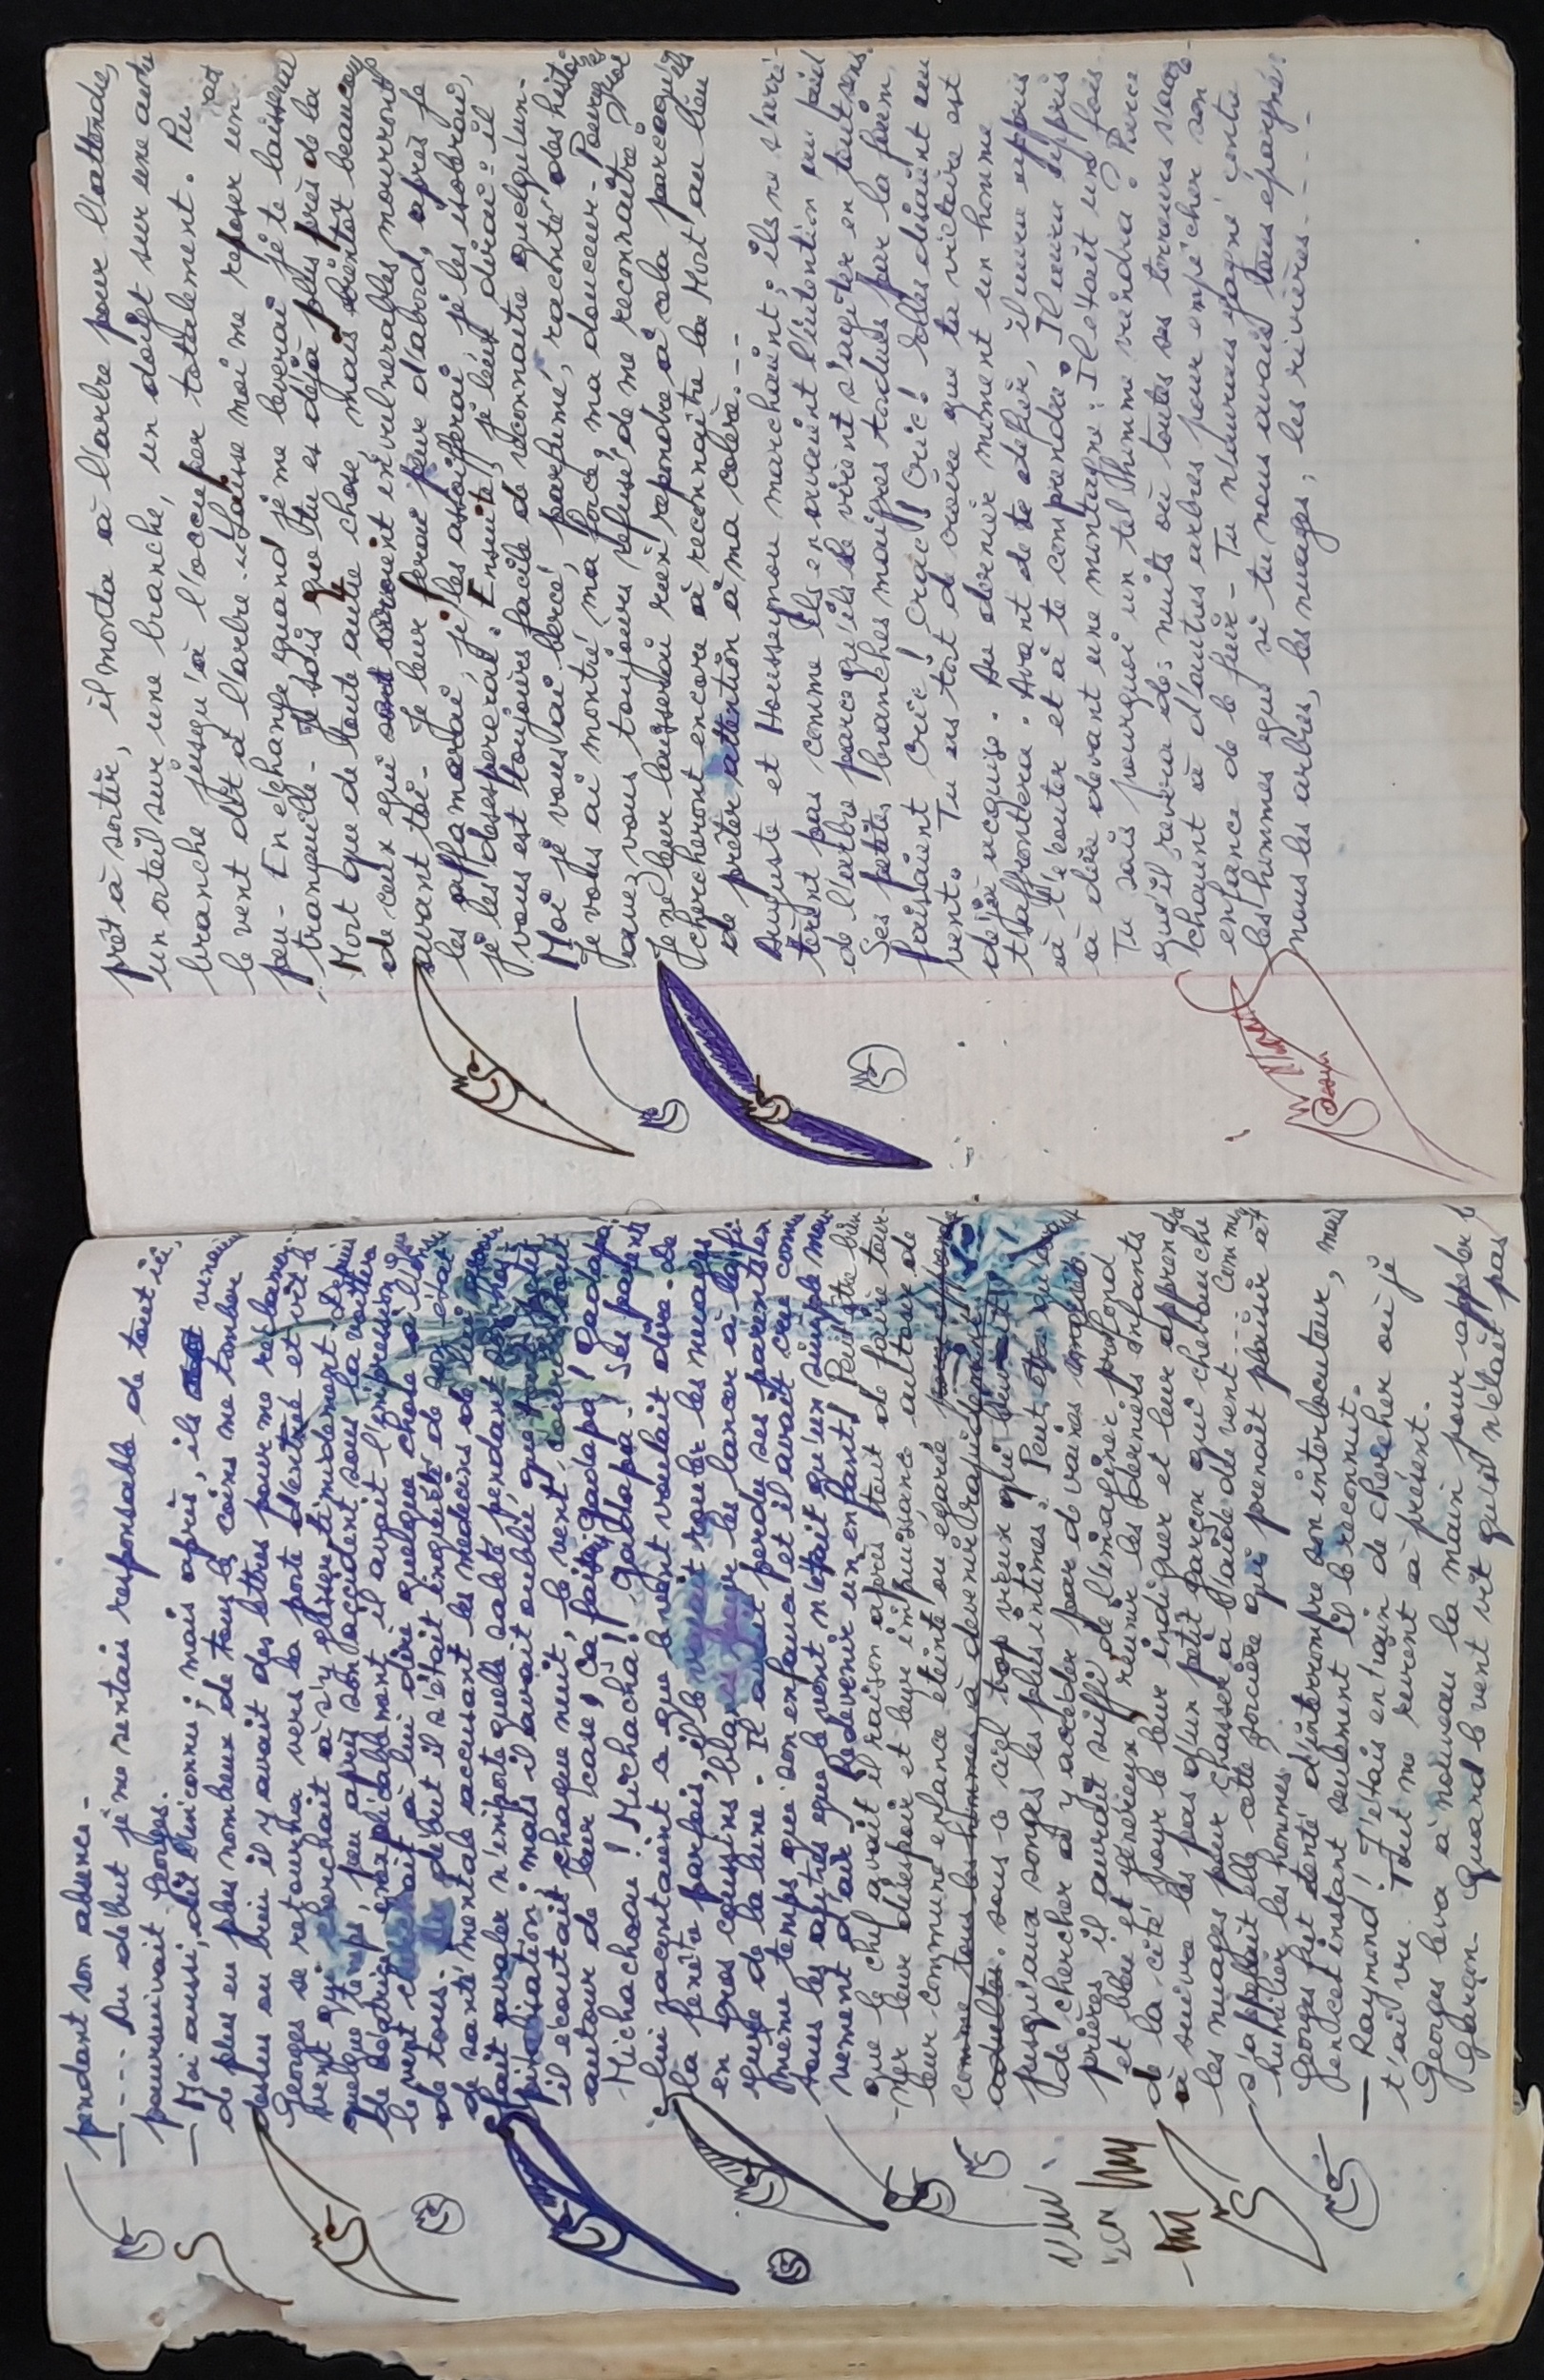 pendant son absence -
— .... Au début je me sentais responsable de tout ici,
poursuivait Georges.
— Moi aussi, dit l'inconnu ; mais après, ils venaient
de plus en plus nombreux de tous les coins me tomber
dessus ou bien il y avait des lettres pour me relancer.
Georges se retourna vers la porte d'entrée et vit le
vent qui cherchait à s'y glisser timidement. Depuis
quelque temps, peu après son accident sous la voiture
de Béatrice, inexplicablement il avait l'impression que
le vent cherchait à lui dire quelque chose à l'insu
de tous. Au début il s'était inquiété de son état
de santé mentale accusant les médecins de lui avoir
fait avaler n'importe quelle saleté pendant son hos-
pitalisation ; mais il avait oublié, que tout petit
il écoutait chaque nuit, le vent, courir tout
autour de leur case ! Ça faisait gadapa ! Gadapa !
Michachaou ! Michacha ! Gadapa ! Ses parents
lui racontaient ce que le vent voulait dire. De
la fenêtre parfois, il le voyait rouler les nuages
en gros coussins blancs pour les lancer à la fi-
gure de la lune. Il avait perdu ses parents en
même temps que son enfance et il avait cru comme
tous les autres que le vent n'était qu'un simple mou-
vement d'air. Redevenir un enfant ! Peut être bien
que le chef avait il raison après tout de faire tour-
-ner leur désespoir et leur impuissance autour de
leur commune enfance éteinte ou égarée
comme tous les hommes à devenir vraiment
adultes. sous ce ciel trop vieux qui
jusqu'aux songes les plus intimes ! Peut être qu'au lieu
de chercher à y accéder par de vaines
prières, il aurait suffi, de l'imaginer profond
et bleu et généreux, réunir les derniers enfants
de la cité pour le leur indiquer et leur apprendre
à suivre les pas d'un petit garçon qui chevauche
les nuages pour chasser à l'aide du vent .... Comment
s'appelait elle cette sorcière qui prenait plaisir à
humilier les hommes.
Georges fut tenté d'interrompre son interlocuteur, mais
en cet instant seulement il le reconnut.
— Raymond ! J'étais en train de chercher où je
t'ai vu. Tout me revient à présent.
Georges leva à nouveau la main pour appeler le
garçon. Quand le vent vit qu'il n'était pas
prêt à sortir, il monta à l'arbre pour l'attendre,
un orteil sur une branche, un doigt sur une autre
branche jusqu'à l'occuper totalement. Puis
le vent dit à l'arbre. «Laisse moi me reposer un
peu - En échange quand je me leverai je te laisserai
tranquille - Je sais que tu es déjà plus près de la
Mort que de toute autre chose, mais bientôt beaucoup
de ceux qui se croient invulnérables mourront
avant toi - Je leur ferai peur d'abord, après je
les affamerai, je les assoifferai, je les isolerai,
je les désespererai. Ensuite, je leur dirai : il
vous est toujours facile de reconnaître quelqu'un -
Moi je vous ai bercé, parfumé, raconté des histoires
Je vous ai montré ma force, ma douceur - Pourquoi
avez vous toujours refusé de me reconnaître ?
Je ne leur laisserai rien répondre à cela parcequ'ils
chercheront encore à reconnaître la Mort au lieu
de prêter attention à ma colère. - -
Auguste et Housseynou marchaient ; ils ne s'arrê-
tèrent pas comme ils en avaient l'intention au pied
de l'arbre parce qu'ils le virent s'agiter en tout sens.
Ses petites branches maigres tordues par la faim,
faisaient Cric ! Crac ! Cric ! Elles disaient au
vent. Tu as tort de croire que ta victoire est
déjà acquise. Au dernier moment un homme
t'affrontera. Avant de te défier, il aura appris
à t'écouter et à te comprendre. Il aura appris
à dire devant une montagne : Il était une fois
Tu sais pourquoi un tel homme viendra ? Parce
qu'il reverra des nuits où toutes ses terreurs s'accro-
chaient à d'autres arbres pour empêcher son
enfance de le fuir - Tu n'aurais gagné contre
les hommes que si tu nous avais tous épargnés ;
nous les arbres, les nuages ; les rivières - - -